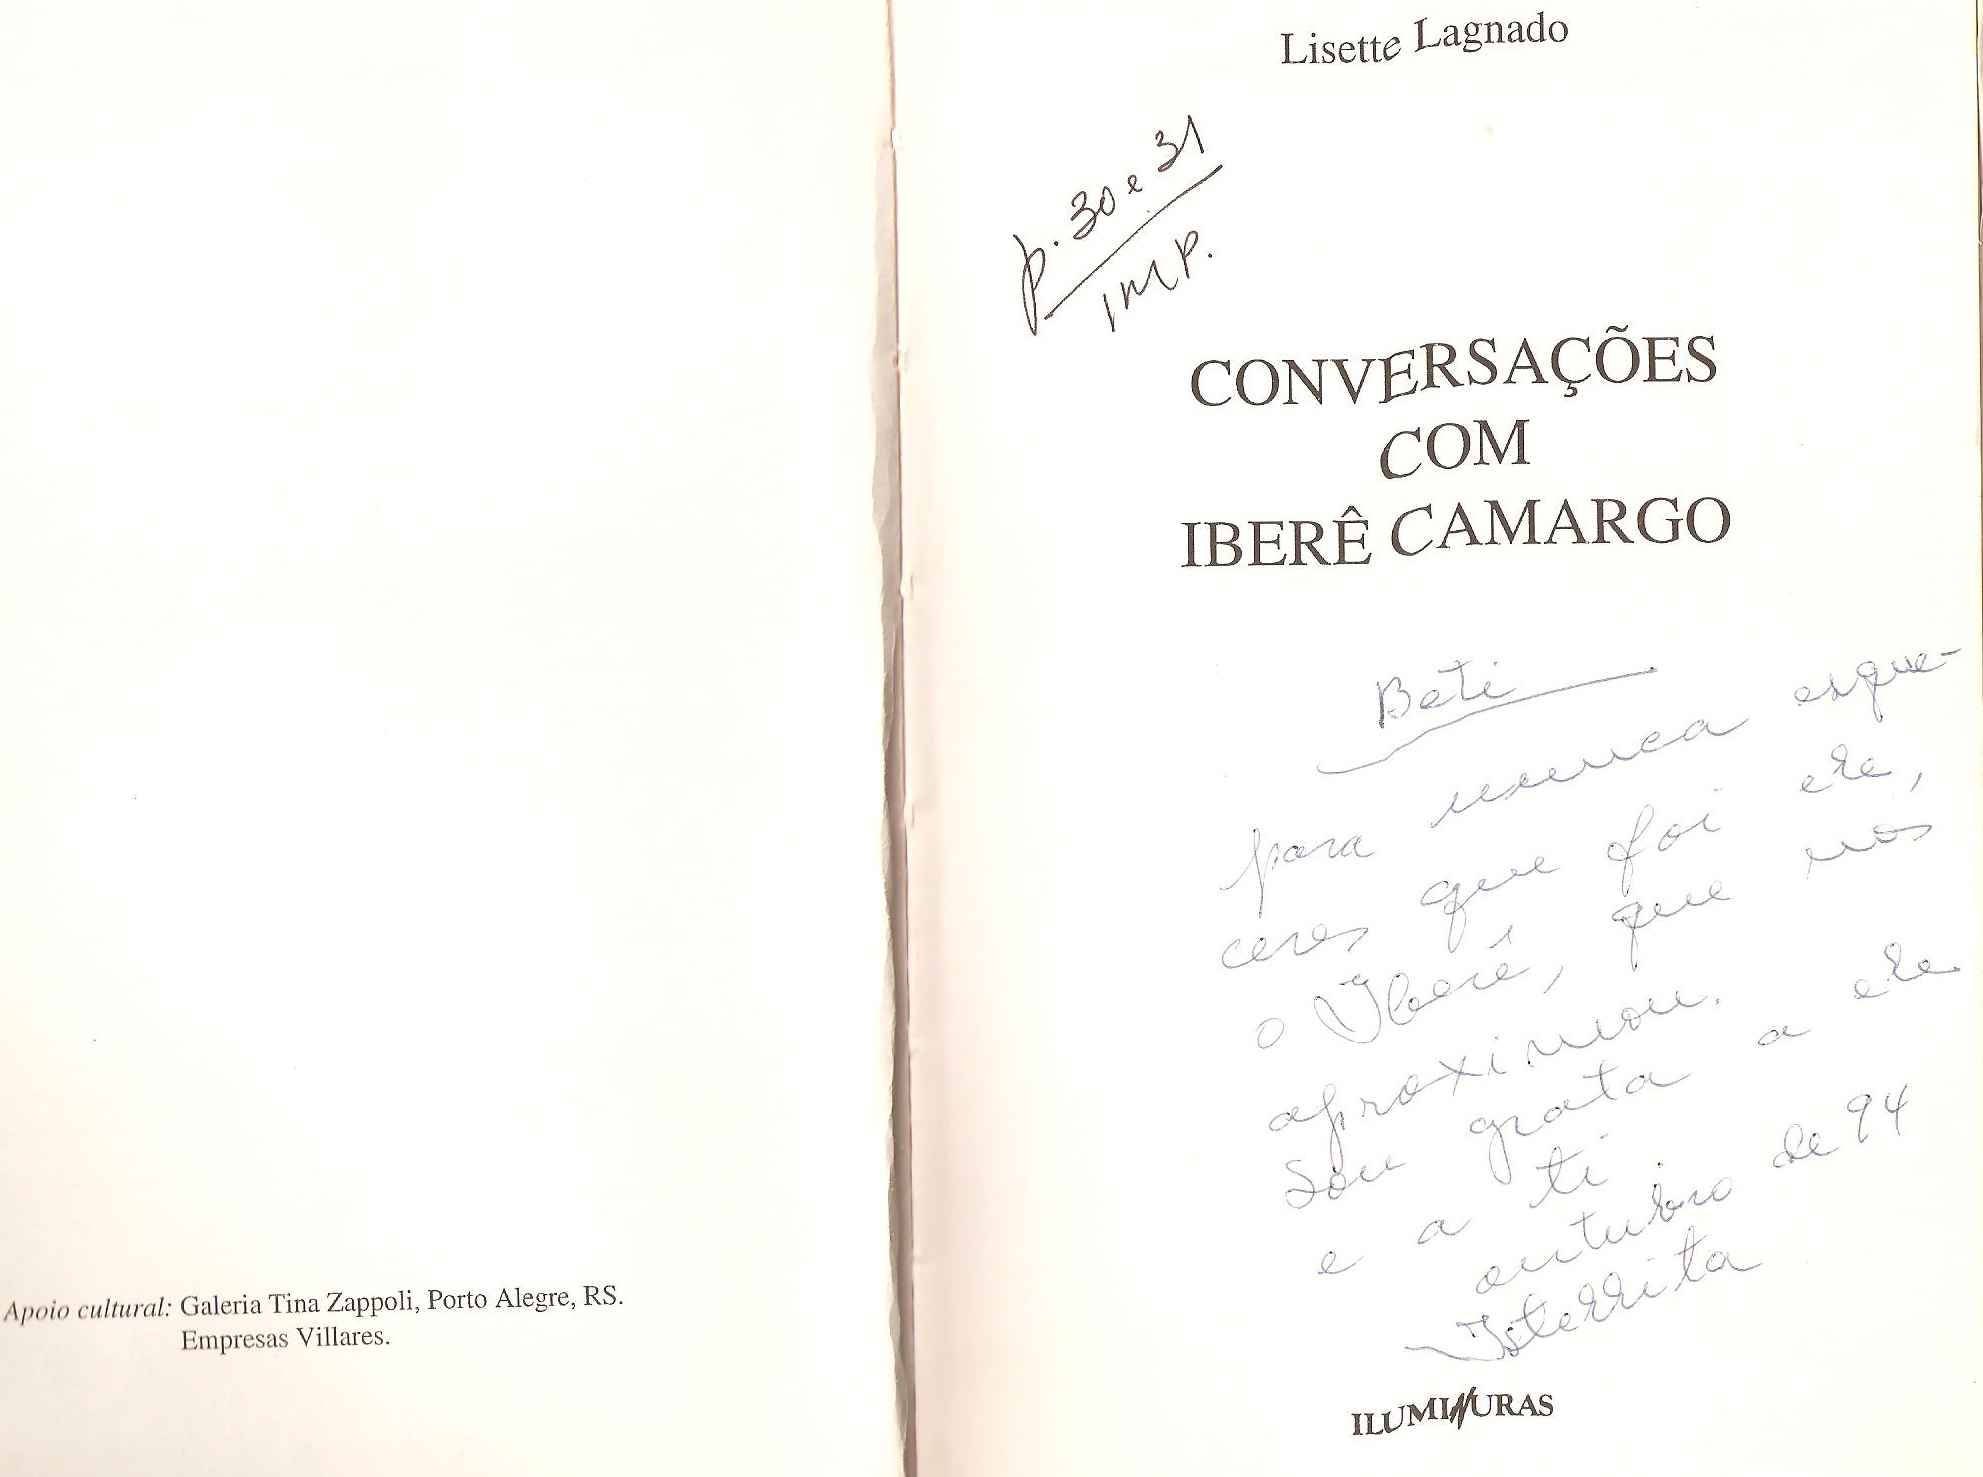 Apoio cultural: Galeria Tina Zappoli, Porto Alegre, RS.
Empresas Villares.
Lisette Lagnado
p. 30 e 31
IMP.
CONVERSAÇÕES
COM
IBERÊ CAMARGO
Beti
para nunca esque-
ceres que foi ele,
o Iberê, que nos
aproximou.
Sou grata a ele
e a ti
outubro de 94
ILUMINURAS